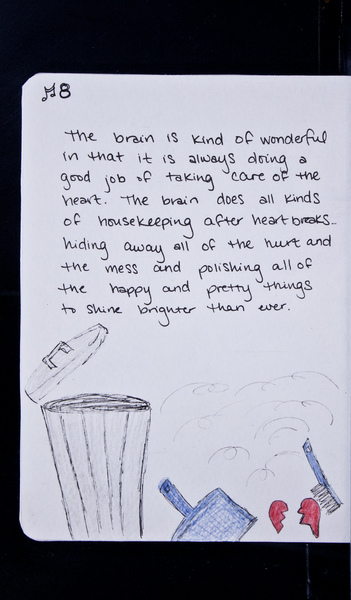 #8
The brain is kind of wonderful
in that it is always doing a
good job of taking care of the
heart. The brain does all kinds
of housekeeping after heartbreaks..
hiding away all of the hurt and
the mess and polishing all of
the happy and pretty things
to shine brighter than ever.